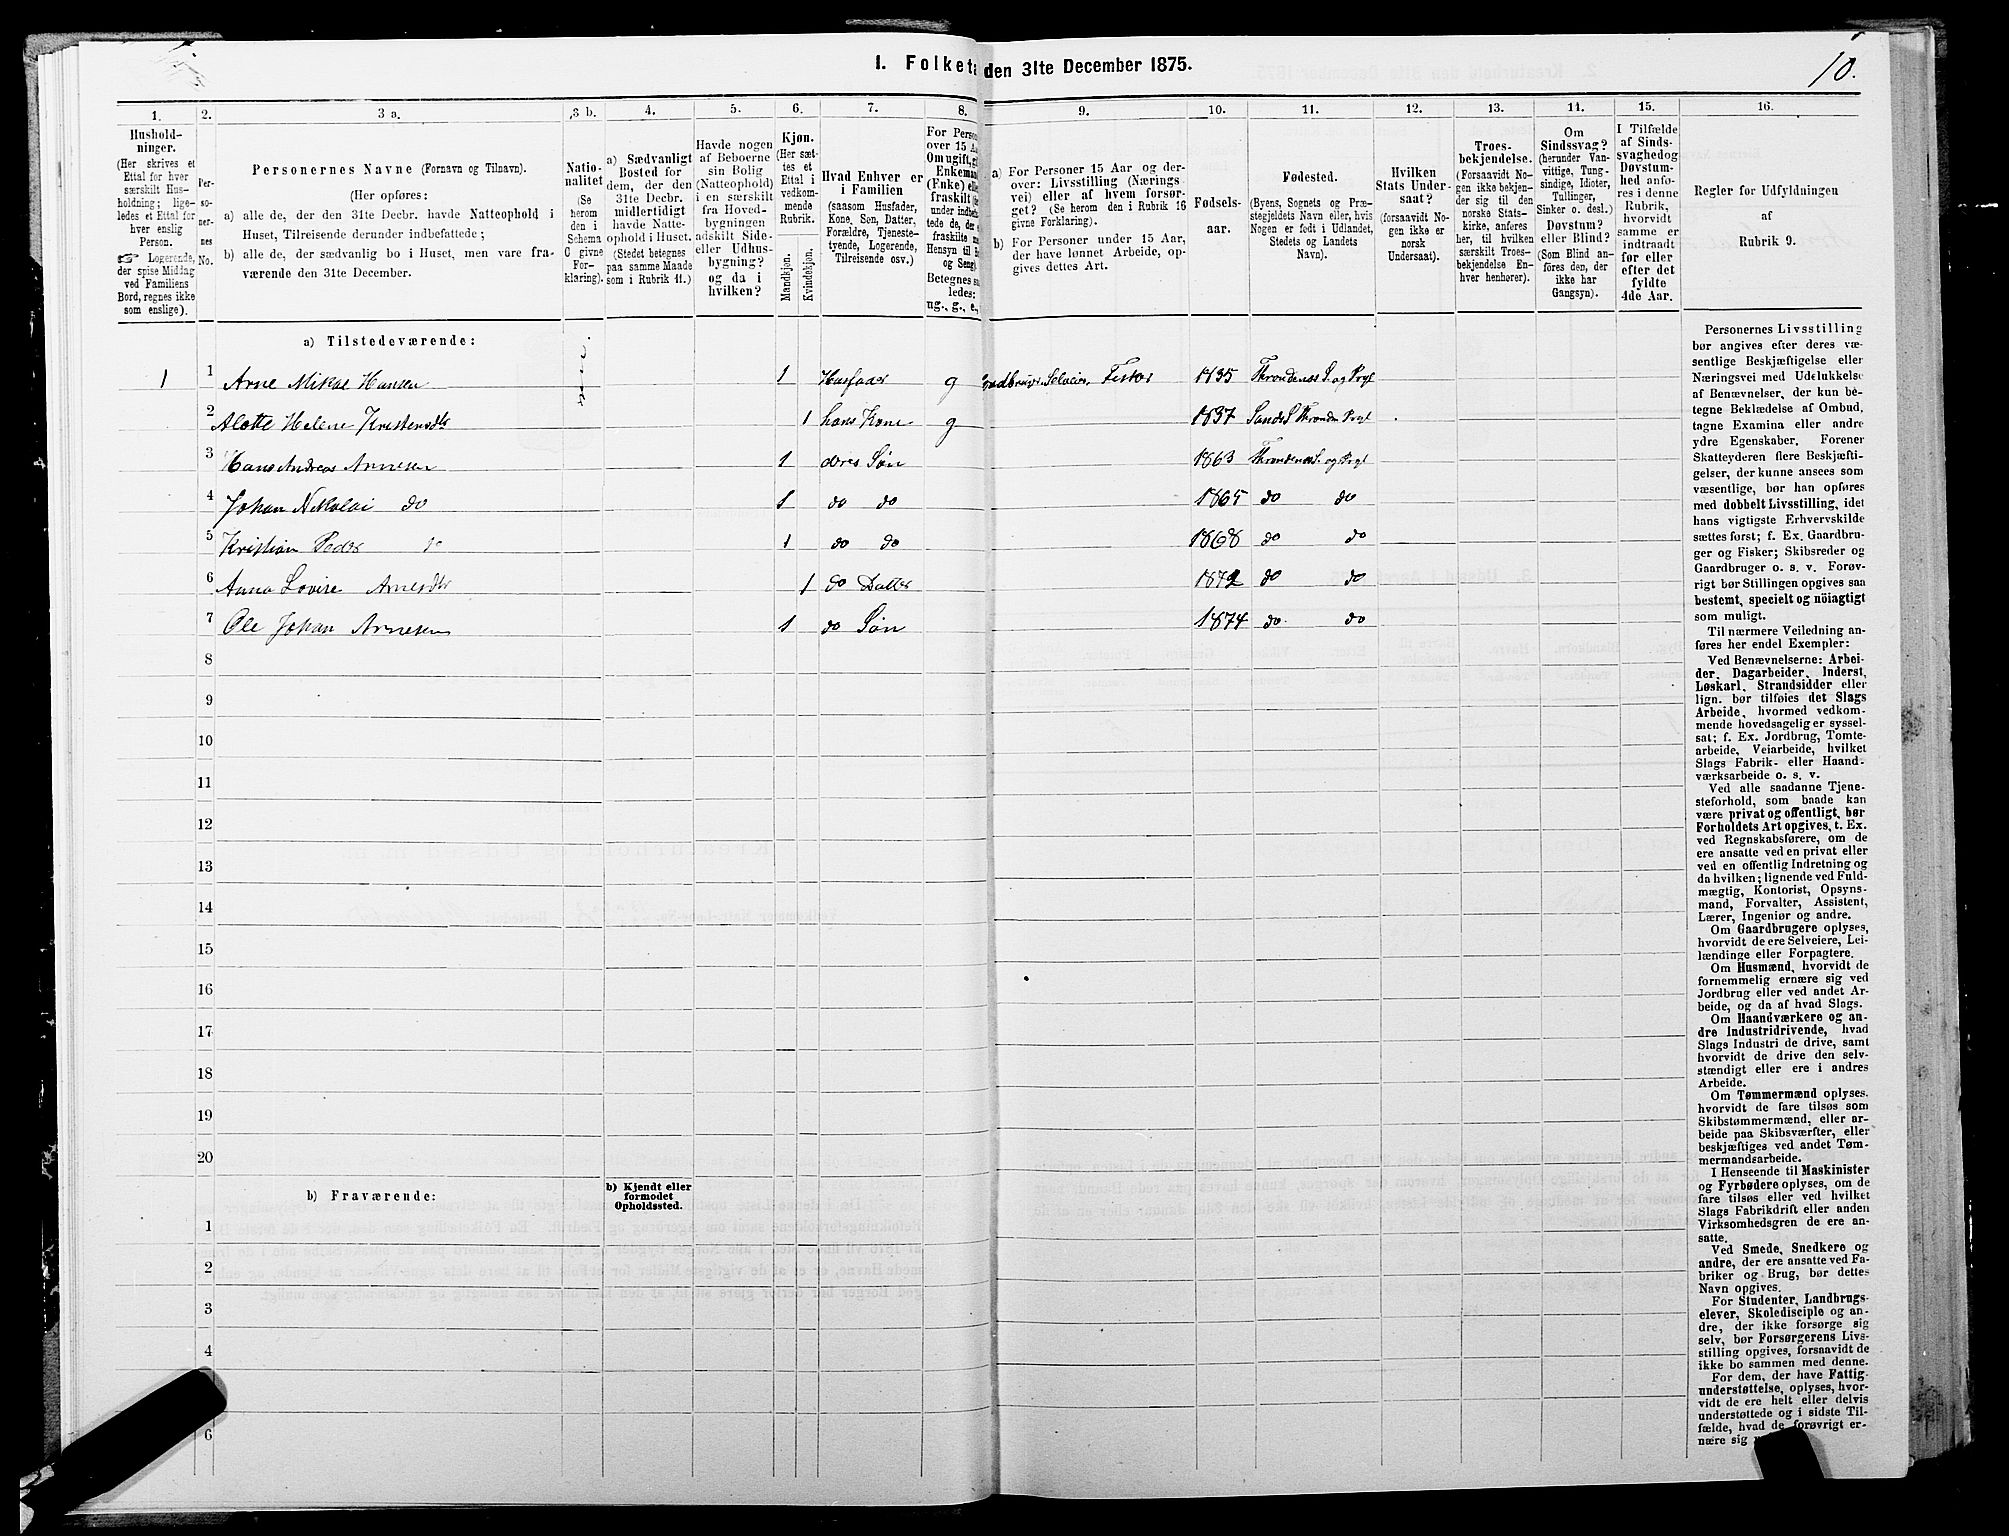 10.
I. Folketæ den 31te December 1875.
1. 2. 3 a. 3 b. 4. 5. 6. 7. 8. 9. 10. 11. 12. 13. 14. 15. 16.
Hushold-
ninger.
(Her skrives et
Ettal for hver
særskilt Hus-
holdning; lige-
ledes et Ettal for
hver enslig
Person.
☞ Logerende,
der spise Middag
ved Familiens
Bord, regnes ikke
som enslige).
Per-
so-
ner-
nes
No.
Personernes Navne (Fornavn og Tilnavn).
(Her opføres:
a) alle de, der den 31te Decbr. havde Natteophold i
Huset, Tilreisende derunder indbefattede;
b) alle de, der sædvanlig bo i Huset, men vare fra-
værende den 31te December.
Natio-
nalitet
(Se
herom
den i
Schema
C givne
For-
klaring).
a) Sædvanligt
Bosted for
dem, der den
31te Decbr.
midlertidigt
havde Natte-
ophold i Huset.
(Stedet betegnes
paa samme Maade
som i Rubrik 11.)
Havde nogen
af Beboerne
sin Bolig
(Natteophold)
i en særskilt
fra Hoved-
bygningen
adskilt Side-
eller Udhus-
bygning?
og da i
hvilken?
Kjøn.
(Her sæt-
tes et
Ettal i
vedkom-
mende
Rubrik.
Mandkjøn.
Kvindekjøn.
Hvad Enhver er
i Familien
(saasom Husfader,
Kone, Søn, Datter,
Forældre, Tjeneste-
tyende, Logerende,
Tilreisende osv.)
For Person
over 15 Aa
Om ugift, gi
Enkeman
(Enke) elle
fraskilt (
under indbe
tede de, der e
fraskilte m
Hensyn til B
og Seng)
Betegnes sa
ledes:
ug., g., e.,
a) For Personer 15 Aar og der-
over: Livsstilling (Nærings
vei) eller af hvem forsør-
get? (Se herom den i Rubrik 16
givne Forklaring).
b) For Personer under 15 Aar,
der have lønnet Arbeide, op-
gives dettes Art.
Fødsels-
aar.
Fødested.
(Byens, Sognets og Præ-
stegjeldets Navn eller, hvis
Nogen er født i Udlandet,
Stedets og Landets
Navn).
Hvilken
Stats Under-
saat?
(forsaavidt No-
gen ikke er
norsk
Undersaat).
Troes-
bekjendelse.
(Forsaavidt No-
gen ikke bekjen-
der sig til den
norske Stats-
kirke, anføres
her, til hvilken
særskilt Troes-
bekjendelse En-
hver henhører).
Om
Sindssvag?
(herunder Van-
vittige, Tung-
sindige, Idioter,
Tullinger,
Sinker o. desl.)
Døvstum?
eller Blind?
(Som Blind an-
føres den, der
ikke har
Gangsyn).
I Tilfælde
af Sinds-
svaghed og
Døvstum-
hed anfø-
res i denne
Rubrik,
hvorvidt
samme er
indtraadt
før eller
efter det
fyldte
4de Aar.
Regler for Udfyldningen
af
Rubrik 9.
a) Tilstedeværende:
1 1 Arne Mikal Hansen 1 Husfader g Selveier, Fisker 1835 Throndenæs S. og Prgl
2 Alette Helene Kristensdtr 1 hans Kone g 1837 Sands S Thronden Prgl
3 Hans Andreas Arnesen 1 deres Søn 1863 Throndenæs S. og Prgl
4 Johan Nikolai do 1 do do 1865 do do
5 Kristian Peder do 1 do do 1868 do do
6 Anna Lovise Arnesdtr 1 do Datter 1872 do do
7 Ole Johan Arnesen 1 do Søn 1874 do do
8
9
10
11
12
13
14
15
16
17
18
19
20
b) Fraværende:
b) Kjendt eller
formodet
Opholdssted.
1
2
3
4
6
Personernes Livsstilling
bør angives efter deres væ-
sentlige Beskjæftigelse eller
Næringsvei med Udelukkelse
af Benævnelser, der kun be-
tegne Beklædelse af Ombud,
tagne Examina eller andre
ydre Egenskaber. Forener
Skatteyderen flere Beskjæfti-
gelser, der kunne ansees som
væsentlige, bør han opføres
med dobbelt Livsstilling, idet
hans vigtigste Erhvervskilde
sættes først; f. Ex. Gaardbru-
ger og Fisker; Skibsreder og
Gaardbruger o. s. v. Forøv-
rigt bør Stillingen opgives saa
bestemt, specielt og nöiagtigt
som muligt.
Til nærmere Veiledning an-
føres her endel Exempler:
Ved Benævnelserne: Arbei-
der, Dagarbeider, Inderst,
Løskarl, Strandsidder eller
lign. bør tilføies det Slags
Arbeide, hvormed vedkom-
mende hovedsagelig er syssel-
sat; f. Ex. Jordbrug, Tomte-
arbeide, Veiarbeide, hvilket
Slags Fabrik- eller Haand-
værksarbeide o. s. v.
Ved alle saadanne Tjene-
steforhold, som baade kan
være privat og offentligt, bør
Forholdets Art opgives, t. Ex.
ved Regnskabsførere, om de
ere ansatte ved en privat eller
ved en offentlig Indretning og
da hvilken; lignende ved Fuld-
mægtig, Kontorist, Opsyns-
mand, Forvalter, Assistent,
Lærer, Ingeniør og andre.
Om Gaardbrugere oplyses,
hvorvidt de ere Selveiere, Lei-
lændinge eller Forpagtere.
Om Husmænd, hvorvidt de
fornemmelig ernære sig ved
Jordbrug eller ved andet Ar-
beide, og da af hvad Slags.
Om Haandværkere og an-
dre Industridrivende, hvad
Slags Industri de drive, samt
hvorvidt de drive den selv-
stændigt eller ere i andres
Arbeide.
Om Tømmermænd oplyses.
hvorvidt de fare tilsøs som
Skibstømmermænd, eller ar-
beide paa Skibsværfter, eller
beskjæftiges ved andet Tøm-
mermandsarbeide.
I Henseende til Maskinister
og Fyrbødere oplyses, om de
fare tilsøs eller ved hvilket
Slags Fabrikdrift eller anden
Virksomhedsgren de ere an-
satte.
Ved Smede, Snedkere og
andre, der ere ansatte ved Fa-
briker og Brug, bør dettes
Navn opgives.
For Studenter, Landbrugs-
elever, Skoledisciple og an-
dre, der ikke forsørge sig
selv, bør Forsørgerens Livs-
stilling opgives, forsaavidt de
ikke bo sammen med denne.
For dem, der have Fattig-
understøttelse, oplyses, hvor-
vidt de ere helt eller delvis
understøttede og i sidste Til-
fælde, hvad de forøvrigt er-
nære sig